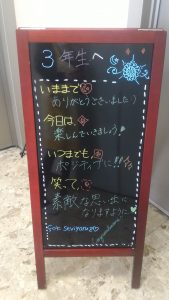 3年生へ
いままで
ありがとうございました!
今日は
楽しんでいきましょう!
いつまでも
ポジティブに!!
笑って
素敵な思い出に
なりますように